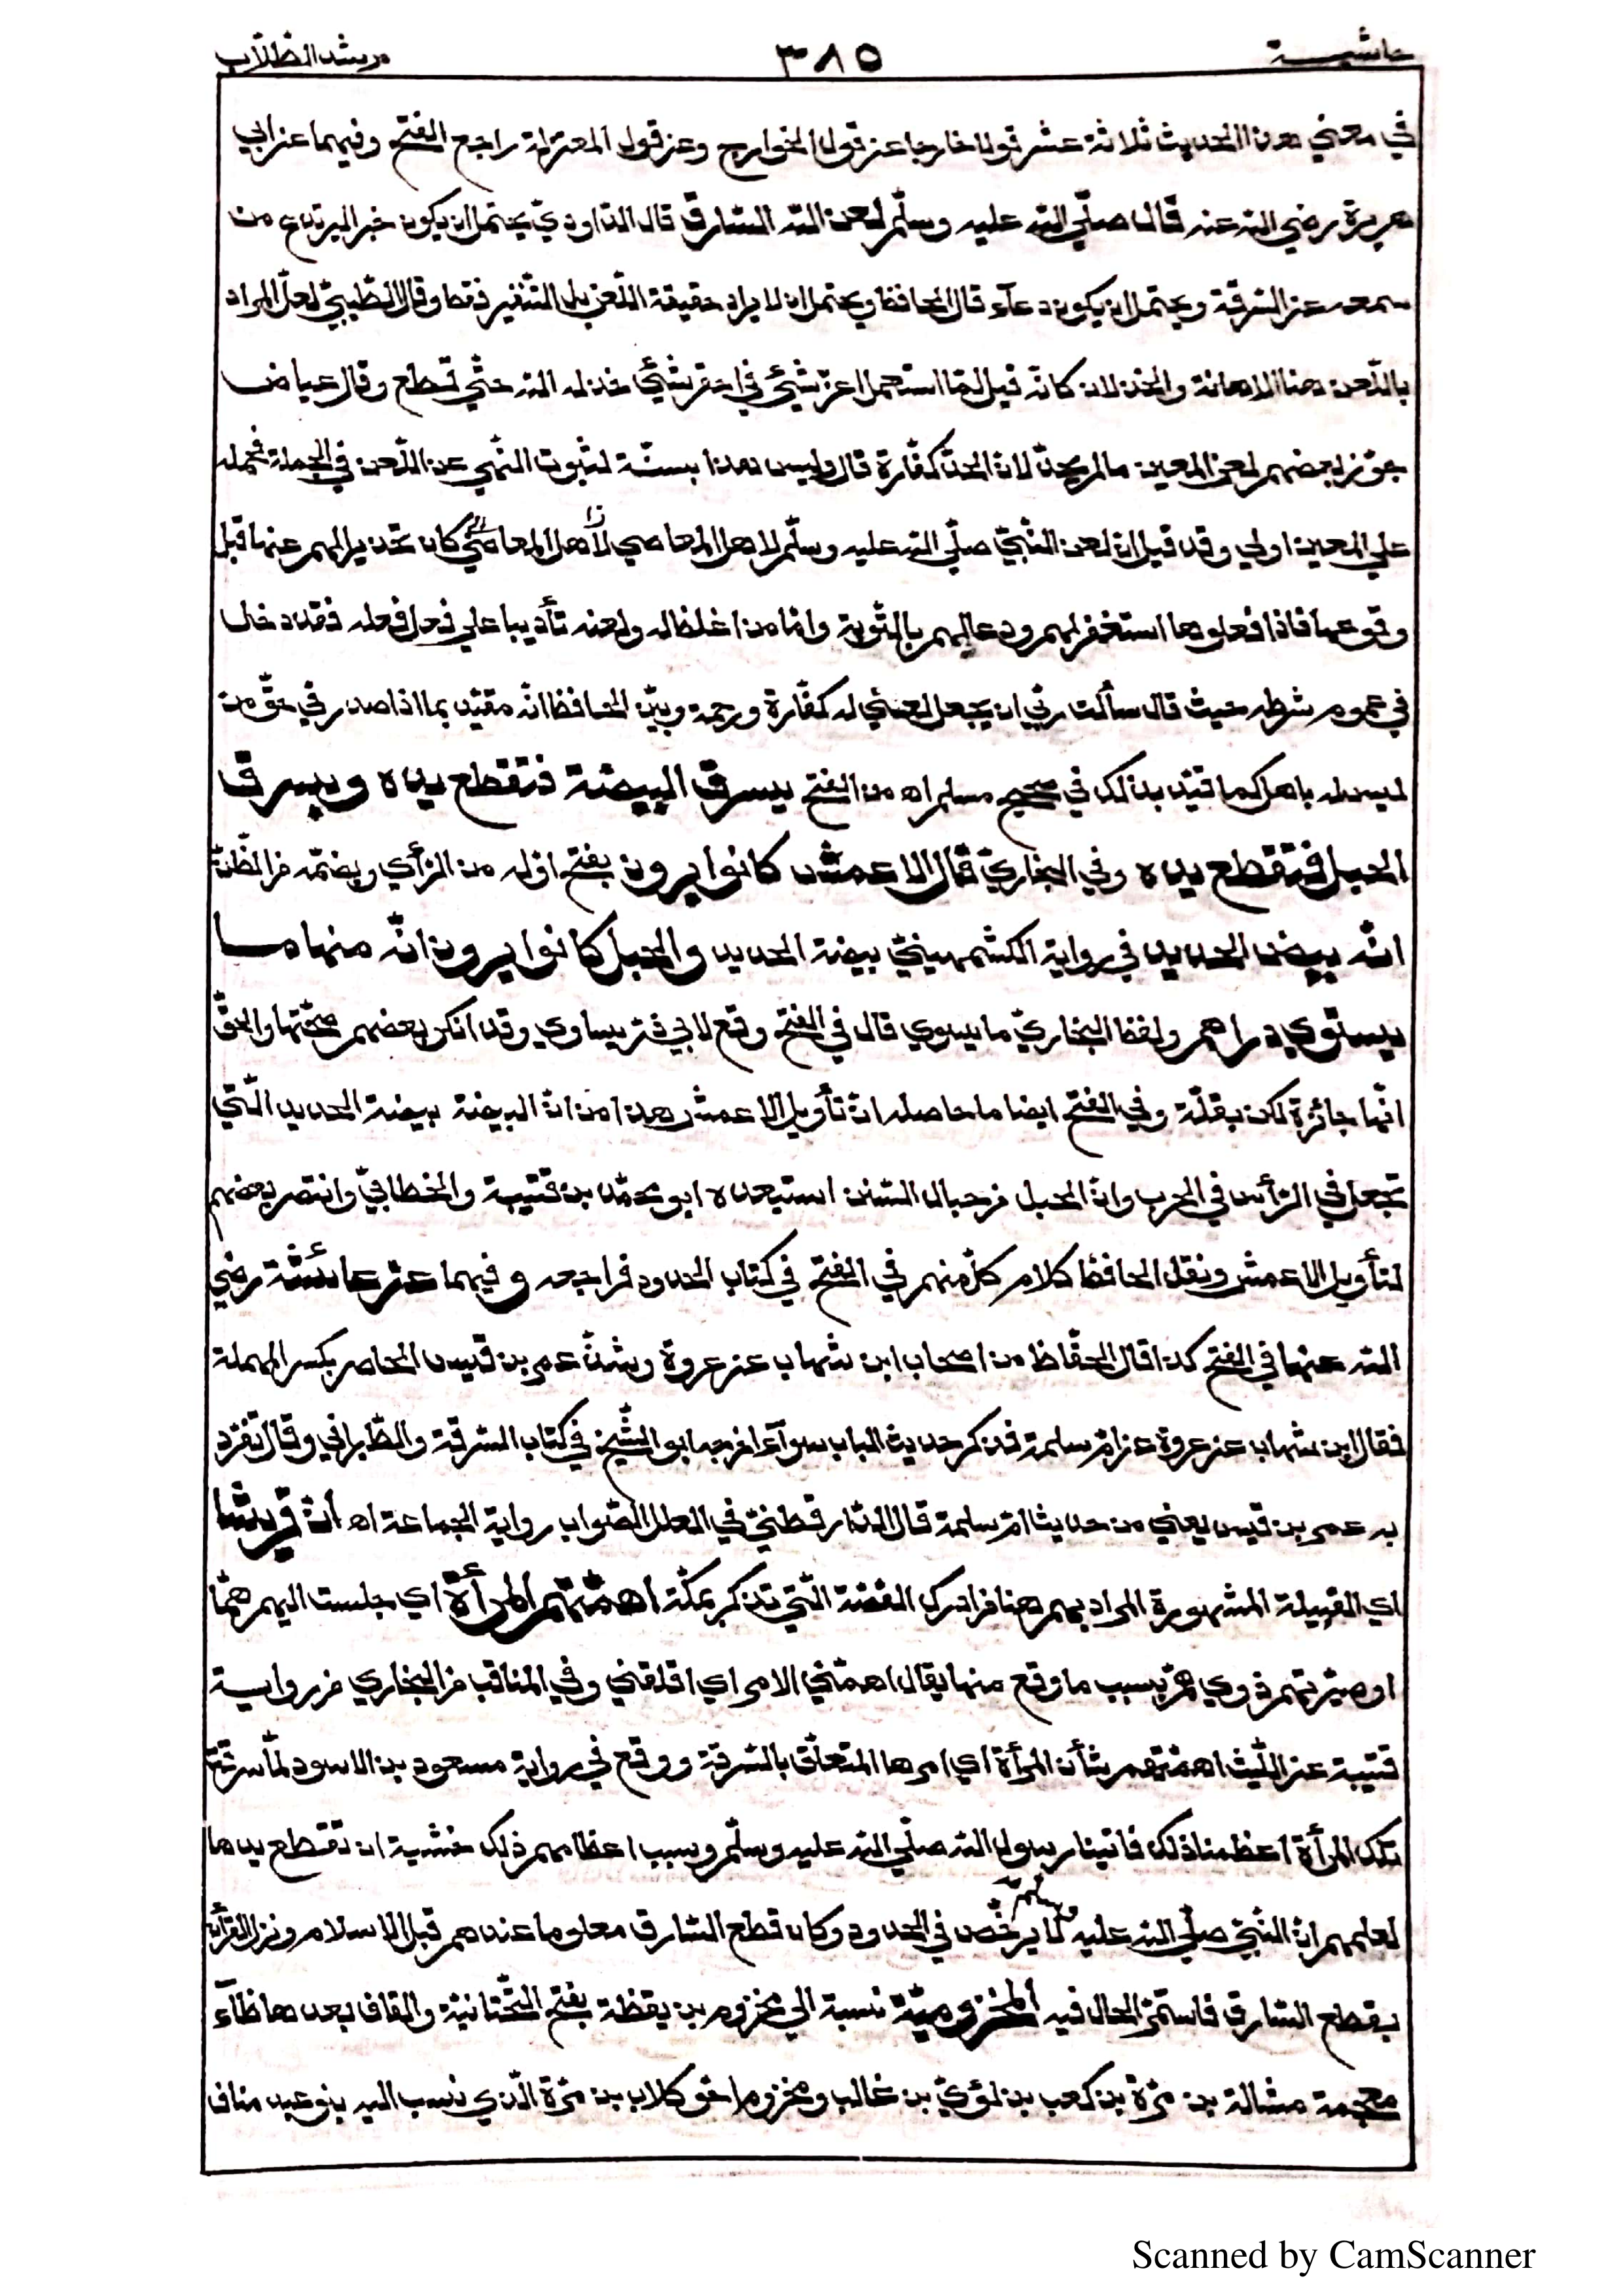 حاشية ٣٨٥ مرشد الطلاب
في معني هذا الحديث ثلاثة عشر قولا خارجا عن قول الخوارج وعن قول المعتزلة راجع الفتح وفيهما عن ابي
هريرة رضي الله عنه قال صلّي الله عليه وسلّم لعن الله السّارق قال الدّاوديّ يحتمل ان يكون خبرا ليرتدع من
سمعه عن السّرقة ويحتمل ان يكون دعآء قال الحافظ ويحتمل ان لا يراد حقيقة اللّعن بل التّنفير فقط وقال الطّيبيّ لعلّ المراد
باللّعن هنا الاهانة والخذلان كانّه قيل لمّا استعمل اعزّ شيئ في احقر شيئ خذله الله حتّي قطع وقال عياض
جوّز بعضهم لعن المعين ما لم يحدّ لانّ الحدّ كفّارة قال وليس هذا بسنّة لثبوت النّهي عن اللّعن في الجملة فحمله
علي المعين اولي وقد قيل انّ لعن النّبيّ صلّي الله عليه وسلّم لاهل المعاصي لأهل المعاصي كان تحذيرا لهم عنها قبل
وقوعها فاذا فعلوها استغفر لهم ودعا لهم بالتّوبة وامّا من اغلظ له ولعنه تأديبا علي فعل فعله فقد دخل
في عموم شرطه حيث قال سألت ربّي ان يجعل لعني له كفّارة ورحمة وبيّن الحافظ انّه مقيّد بما اذا صدر في حقّ من
ليس له باهل كما قيّد بذلك في صحيح مسلم اه من الفتح يسرق البيضة فتقطع يده ويسرق
الحبل فتقطع يده وفي البخاريّ قال الاعمش كانوا يرون بفتح اوّله من الرّأي وبضمّه من الظّنّ
انّه بيض الحديد في رواية الكشمهينيّ بيضة الحديد والحبل كانوا يرون انّه منها ما
يستوي دراهم ولفظ البخاريّ ما يسوي قال في الفتح وقع لابي ذر يساوي وقد انكر بعضهم صحّتها والحقّ
انّها جائزة لكن بقلّة وفي الفتح ايضا ما حاصله انّ تأويل الاعمش هذا من انّ البيضة بيضة الحديد الّتي
تجعل في الرّأس في الحرب وانّ الحبل من حبال السّفن استبعده ابو محمّد بن قتيبة والخطابيّ وانتصر بعضهم
لتأويل الاعمش ونقل الحافظ كلام كلّ منهم في الفتح في كتاب الحدود فراجعه وفيهما عن عائشة رضي
الله عنها في الفتح كذا قال الحفّاظ من اصحاب ابن شهاب عن عروة وشذّ عمر بن قيس الماصر بكسر المهملة
فقال ابن شهاب عن عروة عن امّ سلمة فذكر حديث الباب سوآء اخرجه ابو الشّيخ في كتاب السّرقة والطّبراني وقال تفرّد
به عمر بن قيس يعني من حديث امّ سلمة قال الدّارقطنيّ في العلل الصّواب رواية الجماعة اه أنّ قريشا
اي القبيلة المشهورة المراد بهم هنا من ادرك القصّة الّتي تذكر بمكّة اهمّتهم المرأة اي جلبت اليهم همّا
او صيّرتهم ذوي همّ بسبب ما وقع منها يقال اهمّني الامر اي اقلقني وفي المناقب من البخاري من رواية
قتيبة عن اللّيث اهمّهم شأن المرأة اي امرها المتعلّق بالسّرقة ووقع في رواية مسعود بن الاسود لمّا سرقت
تلك المرأة اعظمنا ذلك فاتينا رسول الله صلّي الله عليه وسلّم وسبب اعظامهم ذلك خشية ان تقطع يدها
لعلمهم انّ النّبيّ صلّي الله عليه وسلّم لا يرخّص في الحدود وكان قطع السّارق معلوما عندهم قبل الاسلام ونزل القرآن
بقطع السّارق فاستمرّ الحال فيه المخزوميّة نسبة الي مخزوم بن يقظة بفتح التّحتانيّة والقاف بعدها ظآء
معجمة مشالة بن مرّة بن كعب بن لؤيّ بن غالب ومخزوم اخو كلاب بن مرّة الّذي نسب اليه بنو عبد مناف
Scanned by CamScanner